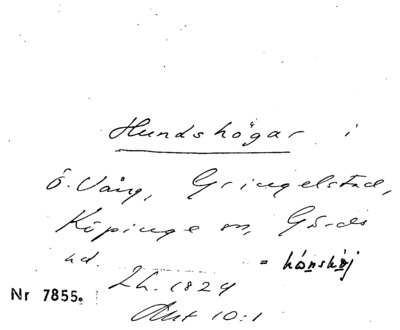 Hundshögar i
Ö. Vång, Gringelstad,
Köpinge sn, Gärds
hd.
= hónshøj
Lh. 1824
Nr 7855.
Akt 10:1